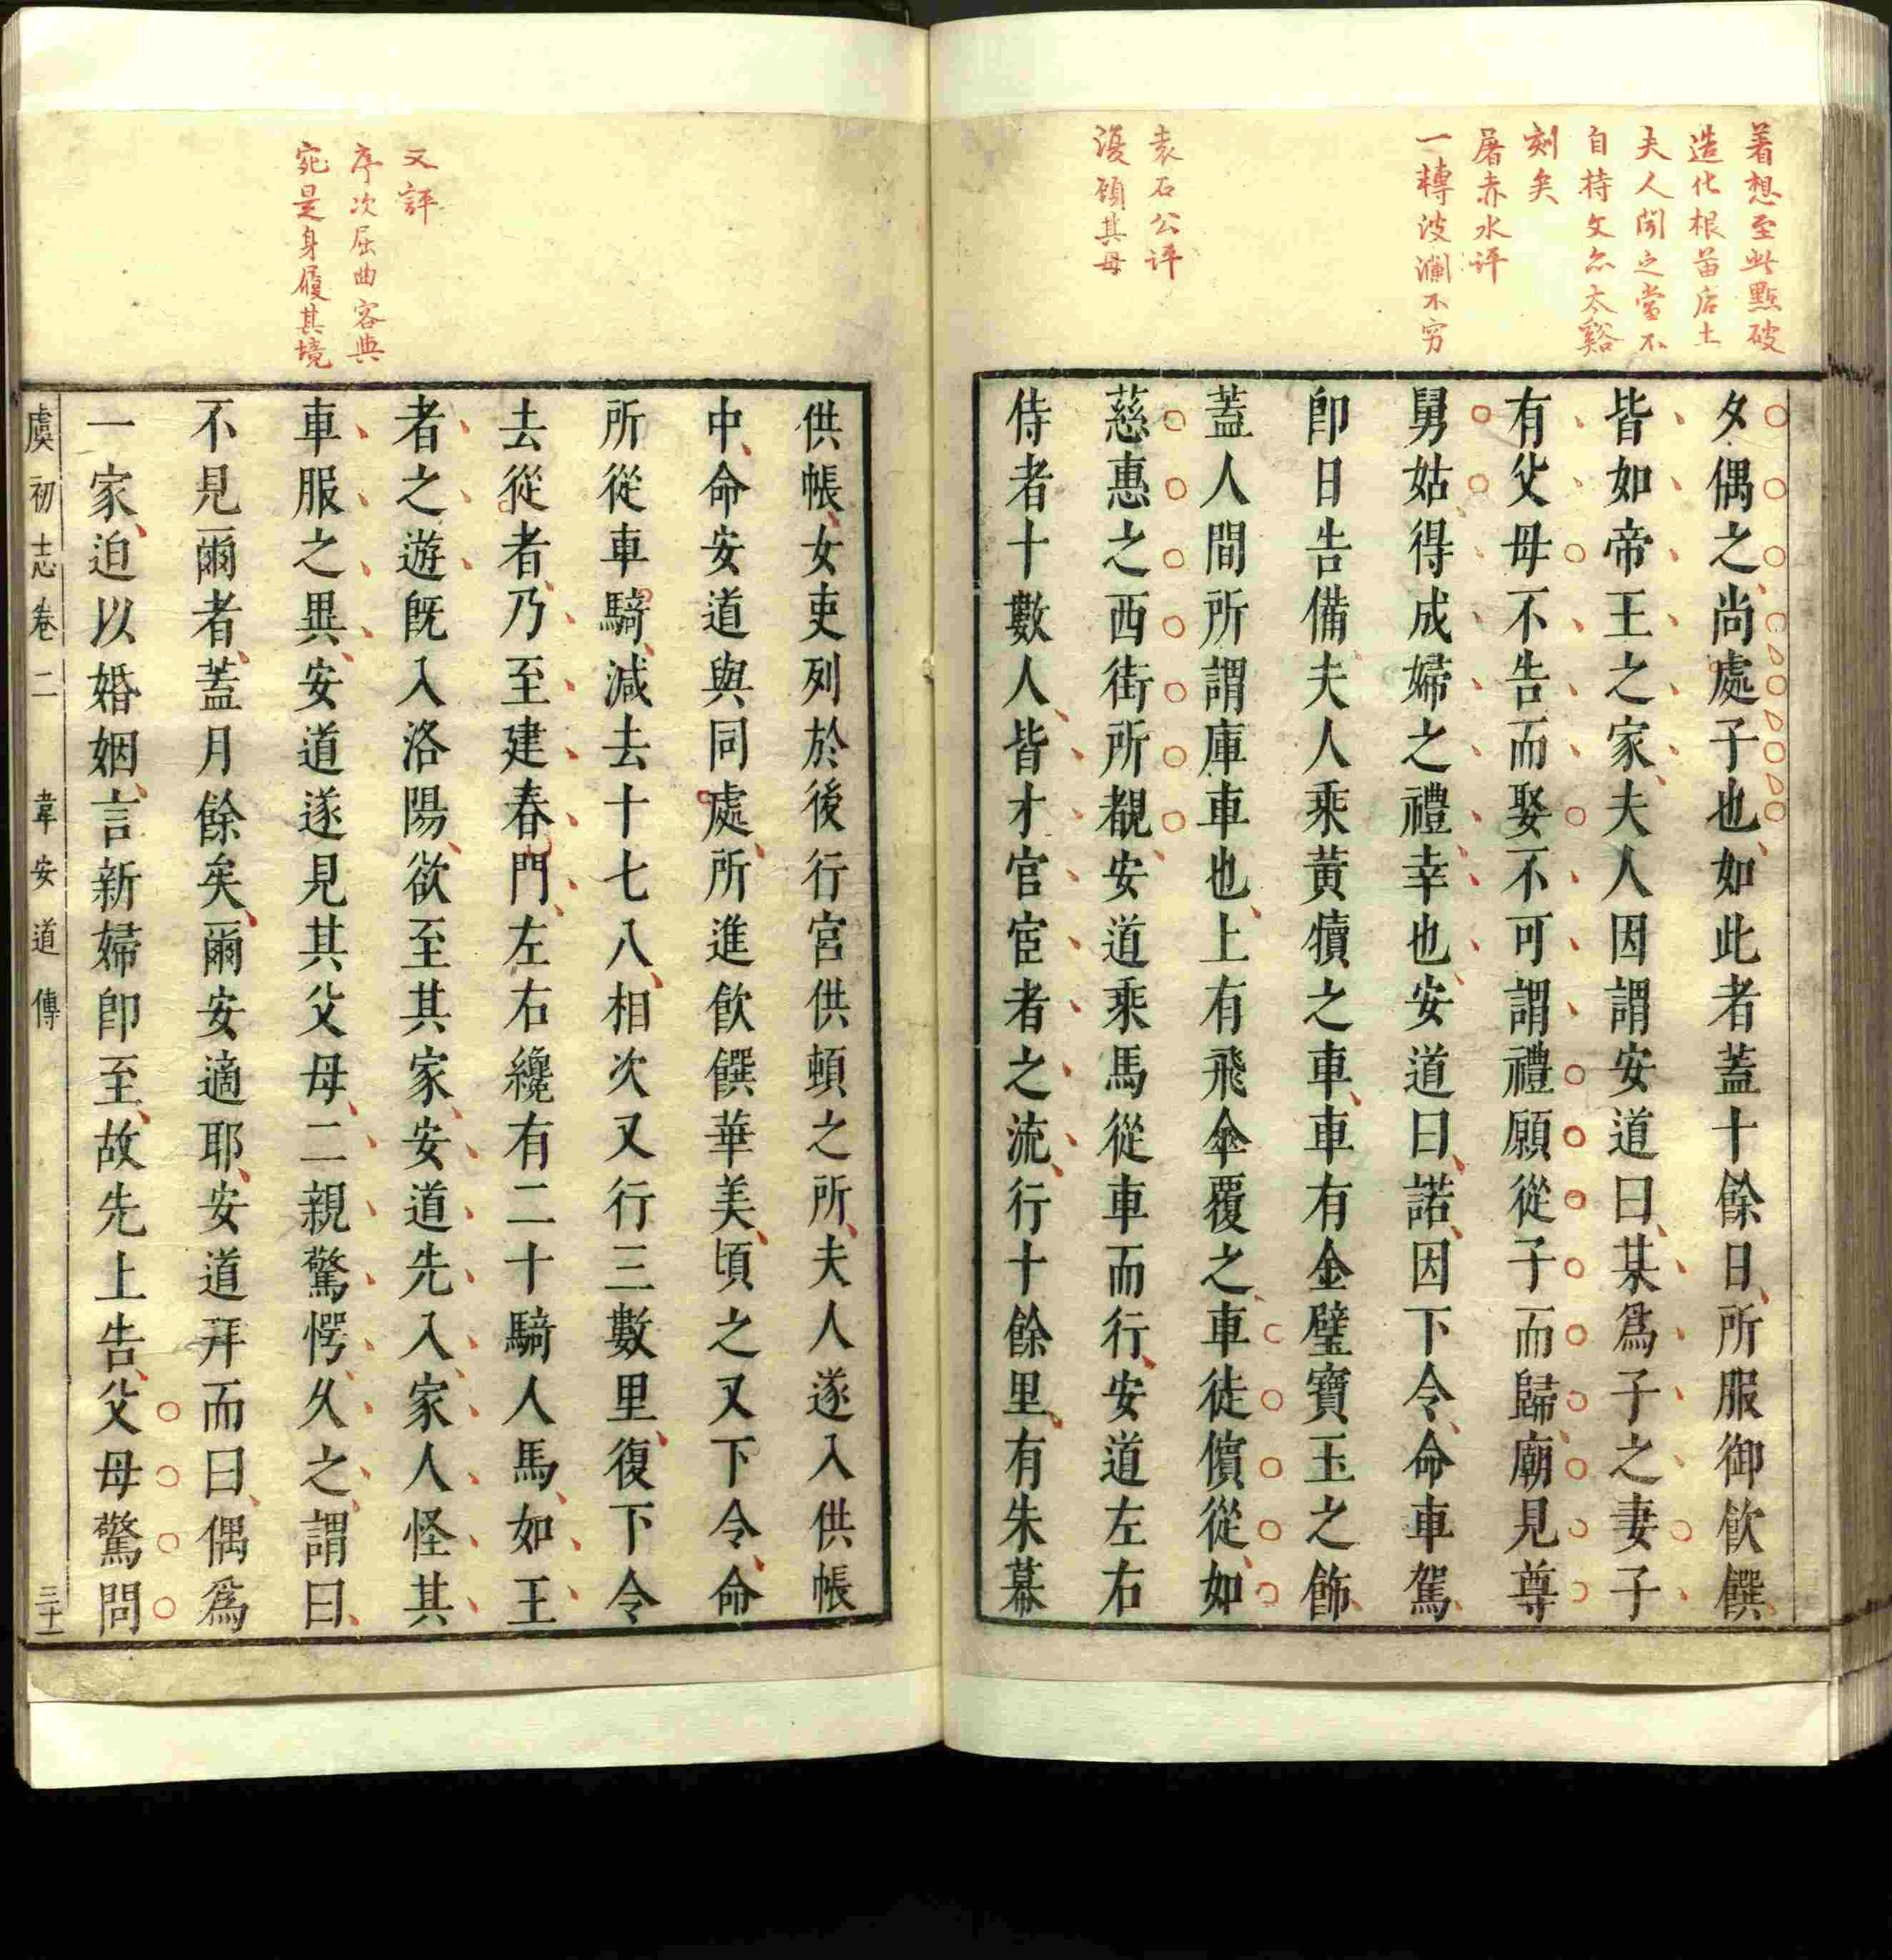 著想至此點破
造化根苗店土
夫人聞之當不
自持文亦太谿
刻矣
屠赤水評
一轉波瀾不穷
袁石公評
復顧其母
夕偶之尚處子也如此者蓋十餘日所服御飲饌
皆如帝王之家夫人因謂安道曰某爲子之妻子
有父母不告而娶不可謂禮願從子而歸廟見尊
舅姑得成婦之禮幸也安道曰諾因下令命車駕
卽日告備夫人乘黃犢之車車有金璧寶玉之飾
蓋人間所謂庫車也上有飛傘覆之車徒儐從如
慈惠之西街所覩安道乘馬從車而行安道左右
侍者十數人皆才官宦者之流行十餘里有朱幕
又評
序次屈曲容典
宛是身履其境
供帳女吏列於後行宮供頓之所夫人遂入供帳
中命安道與同處所進飲饌華美頃之又下令命
所從車騎減去十七八相次又行三數里復下令
去從者乃至建春門左右纔有二十騎人馬如王
者之遊既入洛陽欲至其家安道先入家人怪其
車服之異安道遂見其父母二親驚愕久之謂曰
不見爾者蓋月餘矣爾安適耶安道拜而曰偶爲
一家迫以婚姻言新婦卽至故先上告父母驚問
虞初志卷二 韋安道傳 三十一